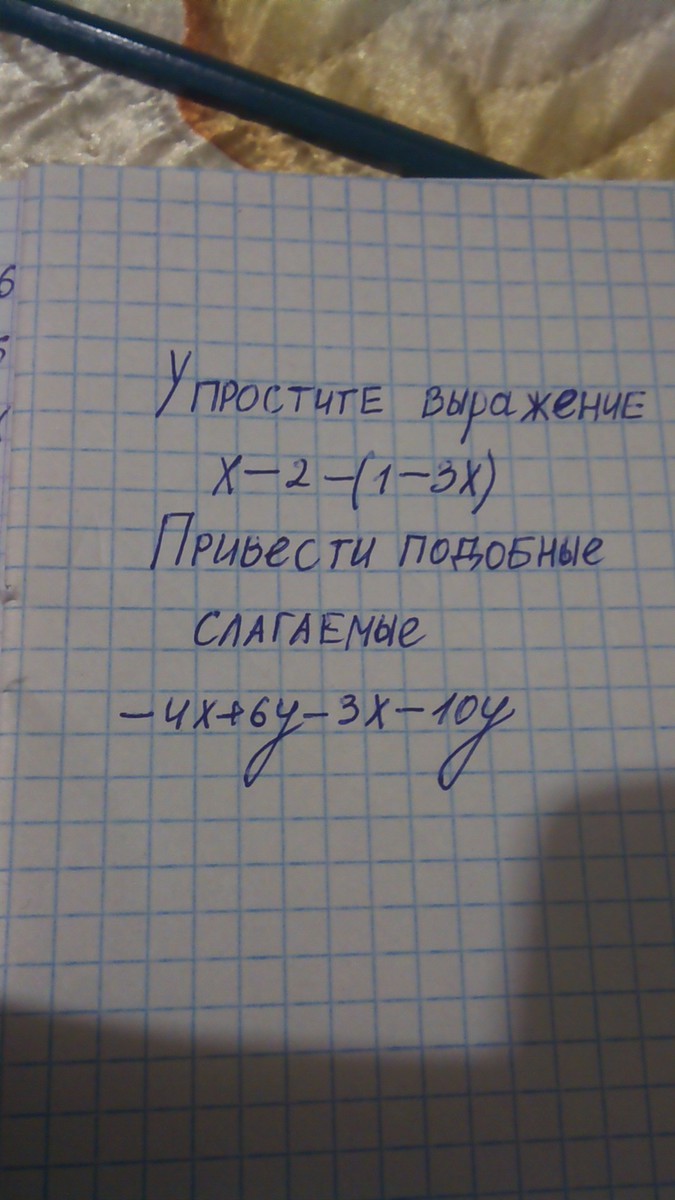 Упростите выражение
x-2-(1-3x)
Привести подобные
слагаемые
-4x+6y-3x-10y